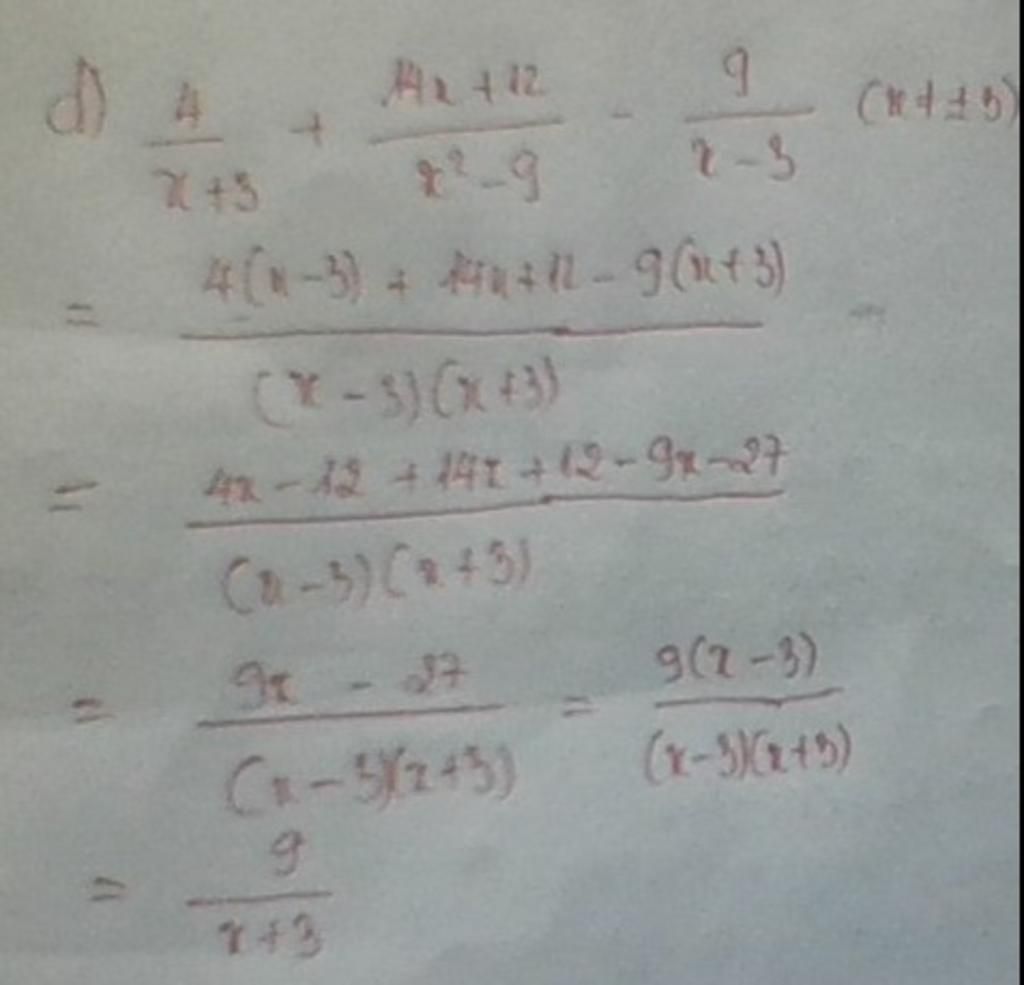 d) \frac{4}{x+3} + \frac{14x+12}{x^2-9} - \frac{9}{x-3} (x≠±3)
= \frac{4(x-3)+14x+12-9(x+3)}{(x-3)(x+3)}
= \frac{4x-12+14x+12-9x-27}{(x-3)(x+3)}
= \frac{9x-27}{(x-3)(x+3)} = \frac{9(x-3)}{(x-3)(x+3)}
= \frac{9}{x+3}